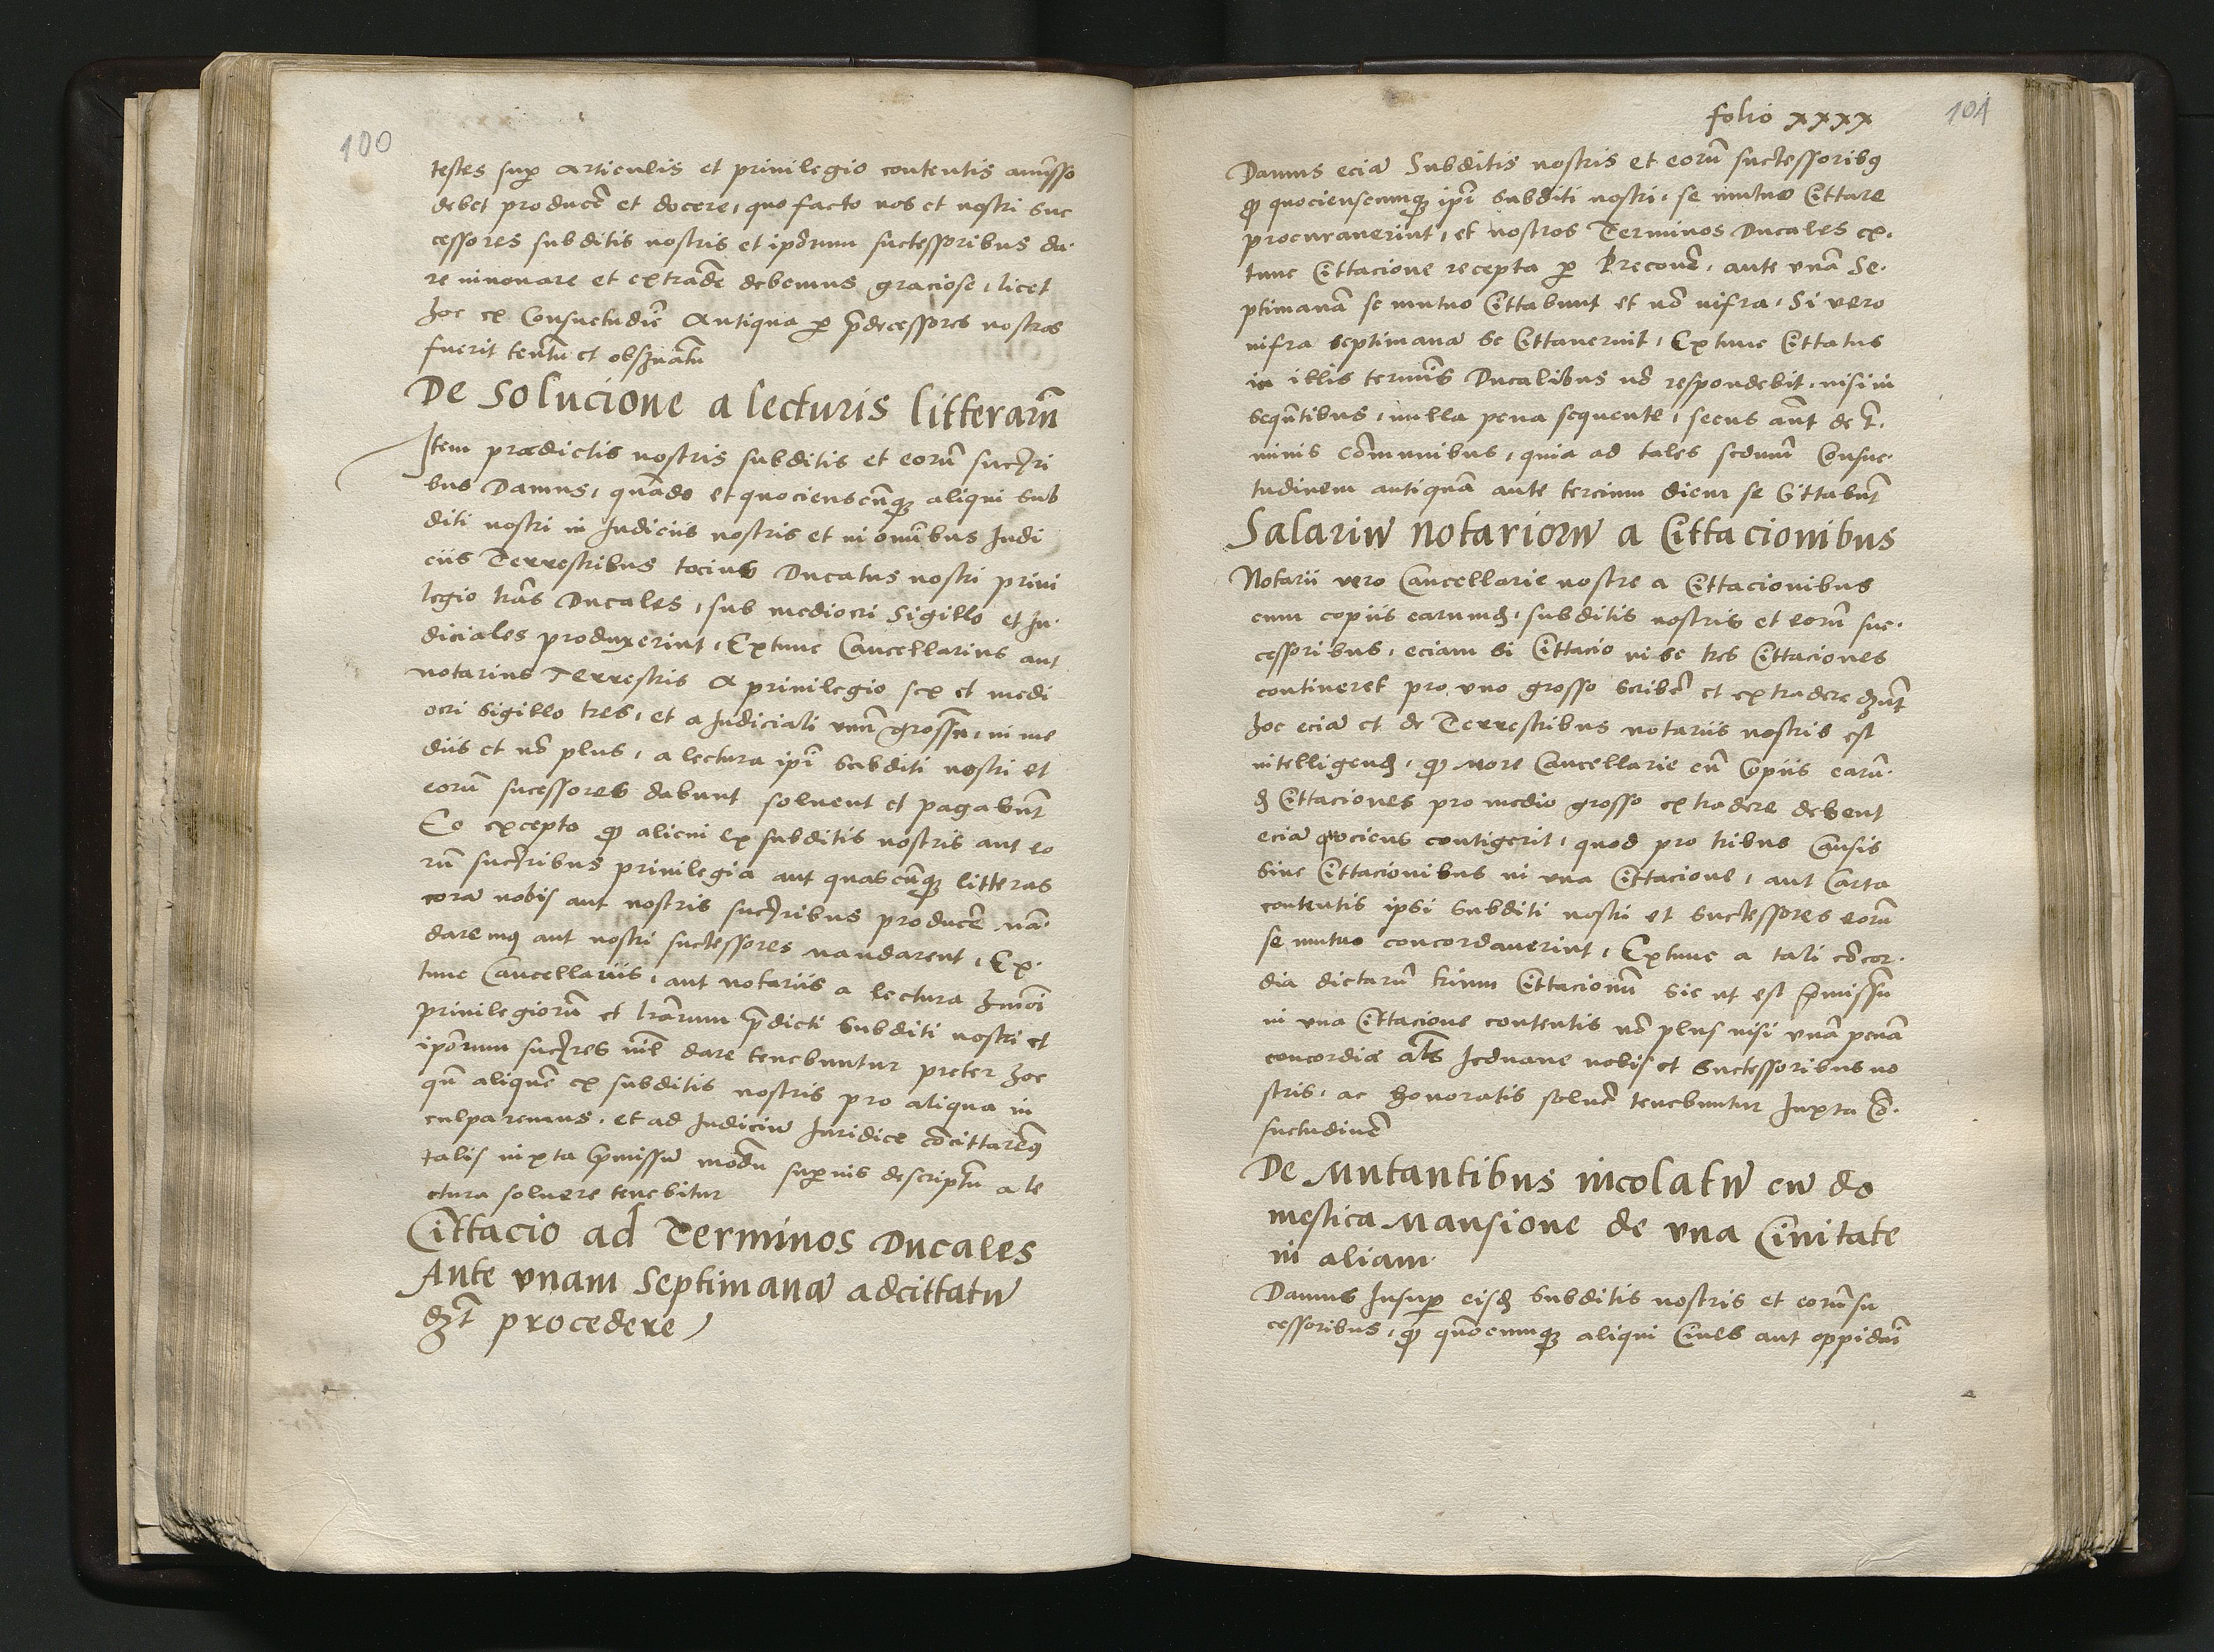 100
testes sup articulis et privilegio contentis amisso
debet producē et docere, quo facto nos et nostri suc
cessores subditis nostris et ipōrum successoribus da-
re innovare et extradē debemus graciose, licet
hoc ex Consuetudiē Antiqua p p̄decessores nostros
fuerit tentū et obsuatū
De Solucione a lecturis litterarū
Item prædictis nostris subditis et eorū succri
bus Damus, quādo et quocienscūq aliqui sub
diti nostri in Judiciis nostris et in omībus Judi
ciis Terrestribus tocius Ducatus nostri privi
legio lrās Ducales, sub mediocri Sigillo et Ju-
diciales produxerint, Extunc Cancellarius aut
notarius Terrestris A privilegio sex et medi
ocri Sigillo tres, et a Judiciali unū grossū, in me
diis et nō plus, a lectura ipī Subditi nostri et
eorū sucessores dabunt solvent et pagabūt
Eo excepto q alicui ex subditis nostris aut eo
rū succribus privilegia aut quascūq litteras
corā nobis aut nostris succribus producē mā-
daremq aut nostri successores mandarent, Ex-
tunc Cancellariis, aut notariis a lectura hmōi
privilegiorū et lrārum p̄dicti Subditi nostri et
ipōrum succres nil dare tenebuntur preter hoc
qn̄ aliquē ex subditis nostris pro aliqua in
culparemus, et ad Judiciū Juridice cōcittaremq
talis iuxta p̄missū modū supius descriptū a le
ctura solvere tenebitur
Cittacio ad Terminos Ducales
Ante unam Septimanā adcittatū
dzt procedere
folio xxxx
101
Damus eciā Subditis nostris et eorū successoribq
q quocienscumq ipī Subditi nostri, se mutuo Cittare
procuraverint, et nostros Terminos Ducales ex-
tunc Cittacione recepta p Preconē, ante unā Se-
ptimanā se mutuo Cittabunt et nō infra, Si vero
infra septimanā se Cittaverint, Extunc Cittatus
in illis termīs Ducalibus nō respondebit, nisi in
sequētibus, nulla pena sequente, secus aūt de t-
minis cōmunibus, quia ad tales scdum Consue-
tudinem antiquā ante tercium diem se Cittabūt
Salariū notariorū a Cittacionibus
Notarii vero Cancellarie nostre a Cittacionibus
cum copiis earumd, subditis nostris et eorū suc-
cessoribus, eciam si Cittacio in se tres Cittaciones
contineret pro uno grosso scribē et extradere dznt
hoc eciā et de Terrestribus notariis nostris est
intelligend, q more Cancellarie cū Copiis earū-
d Cittaciones pro medio grosso extradere debent
eciā quociens contigerit, quod pro tribus Causis
sive Cittacionibus in una Cittacione, aut Carta
contentis ipsi Subditi nostri et Successores eorū
se mutuo concordaverint, Extunc a tali cōcor-
dia dictarū trium Cittacionū sic ut est p̄missū
in una Cittacione contentis nō plus nisi unā penā
concordiæ als Jednane nobis et Successoribus no
stris, ac Honoratis solvē tenebuntur Juxta Cō-
suetudinē
De Mutantibus incolatū cū do
mestica Mansione de una Civitate
in aliam
Damus Insup eisd Subditis nostris et eorū su
cessoribus, q quōcumq aliqui Cives aut oppidāi